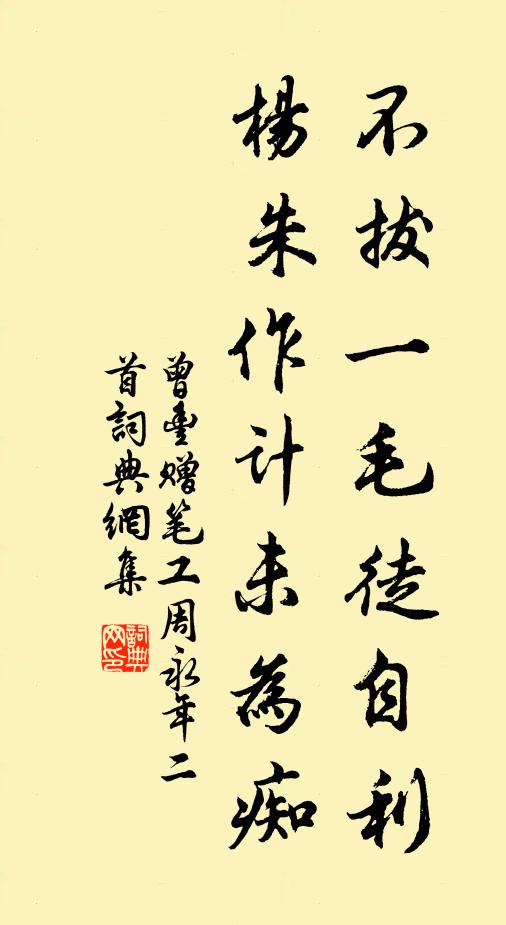 不拔一毛徒自利
楊朱作计未為痴
曾豊赠笔工周永年二
首詞典網集
詞典
网印